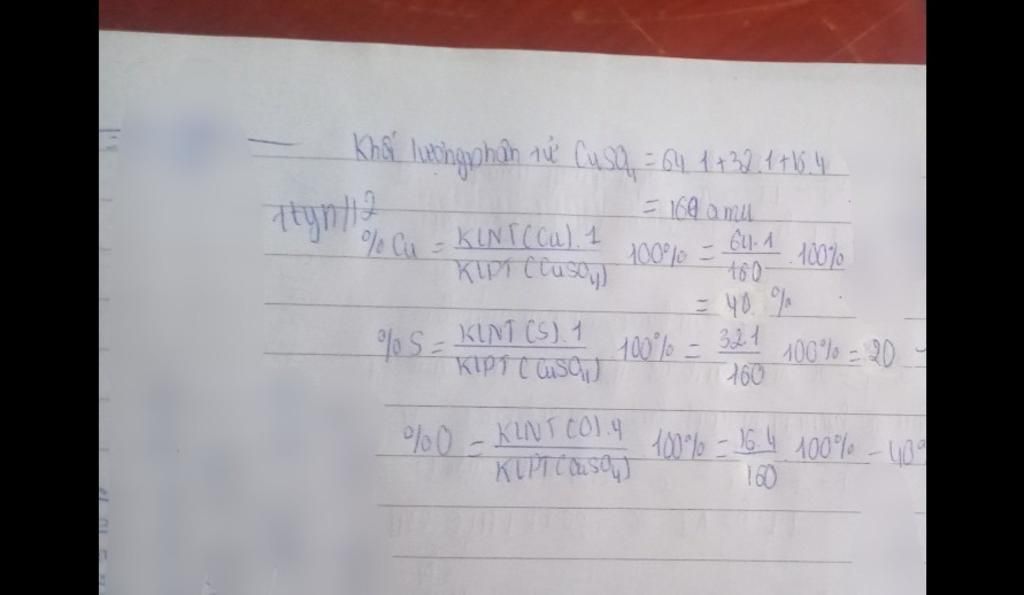 Khối lượng phân tử CuSO4 = 64.1+32.1+16.4
= 160 amu
%Cu = KLNT(Cu).1 / KLPT(CuSO4) 100% = 64.1 / 160 . 100%
= 40 %
%S = KLNT(S).1 / KLPT(CuSO4) 100% = 32.1 / 160 100% = 20
%O = KLNT(O).4 / KLPT(CuSO4) . 100% = 16.4 / 160 . 100% = 40%